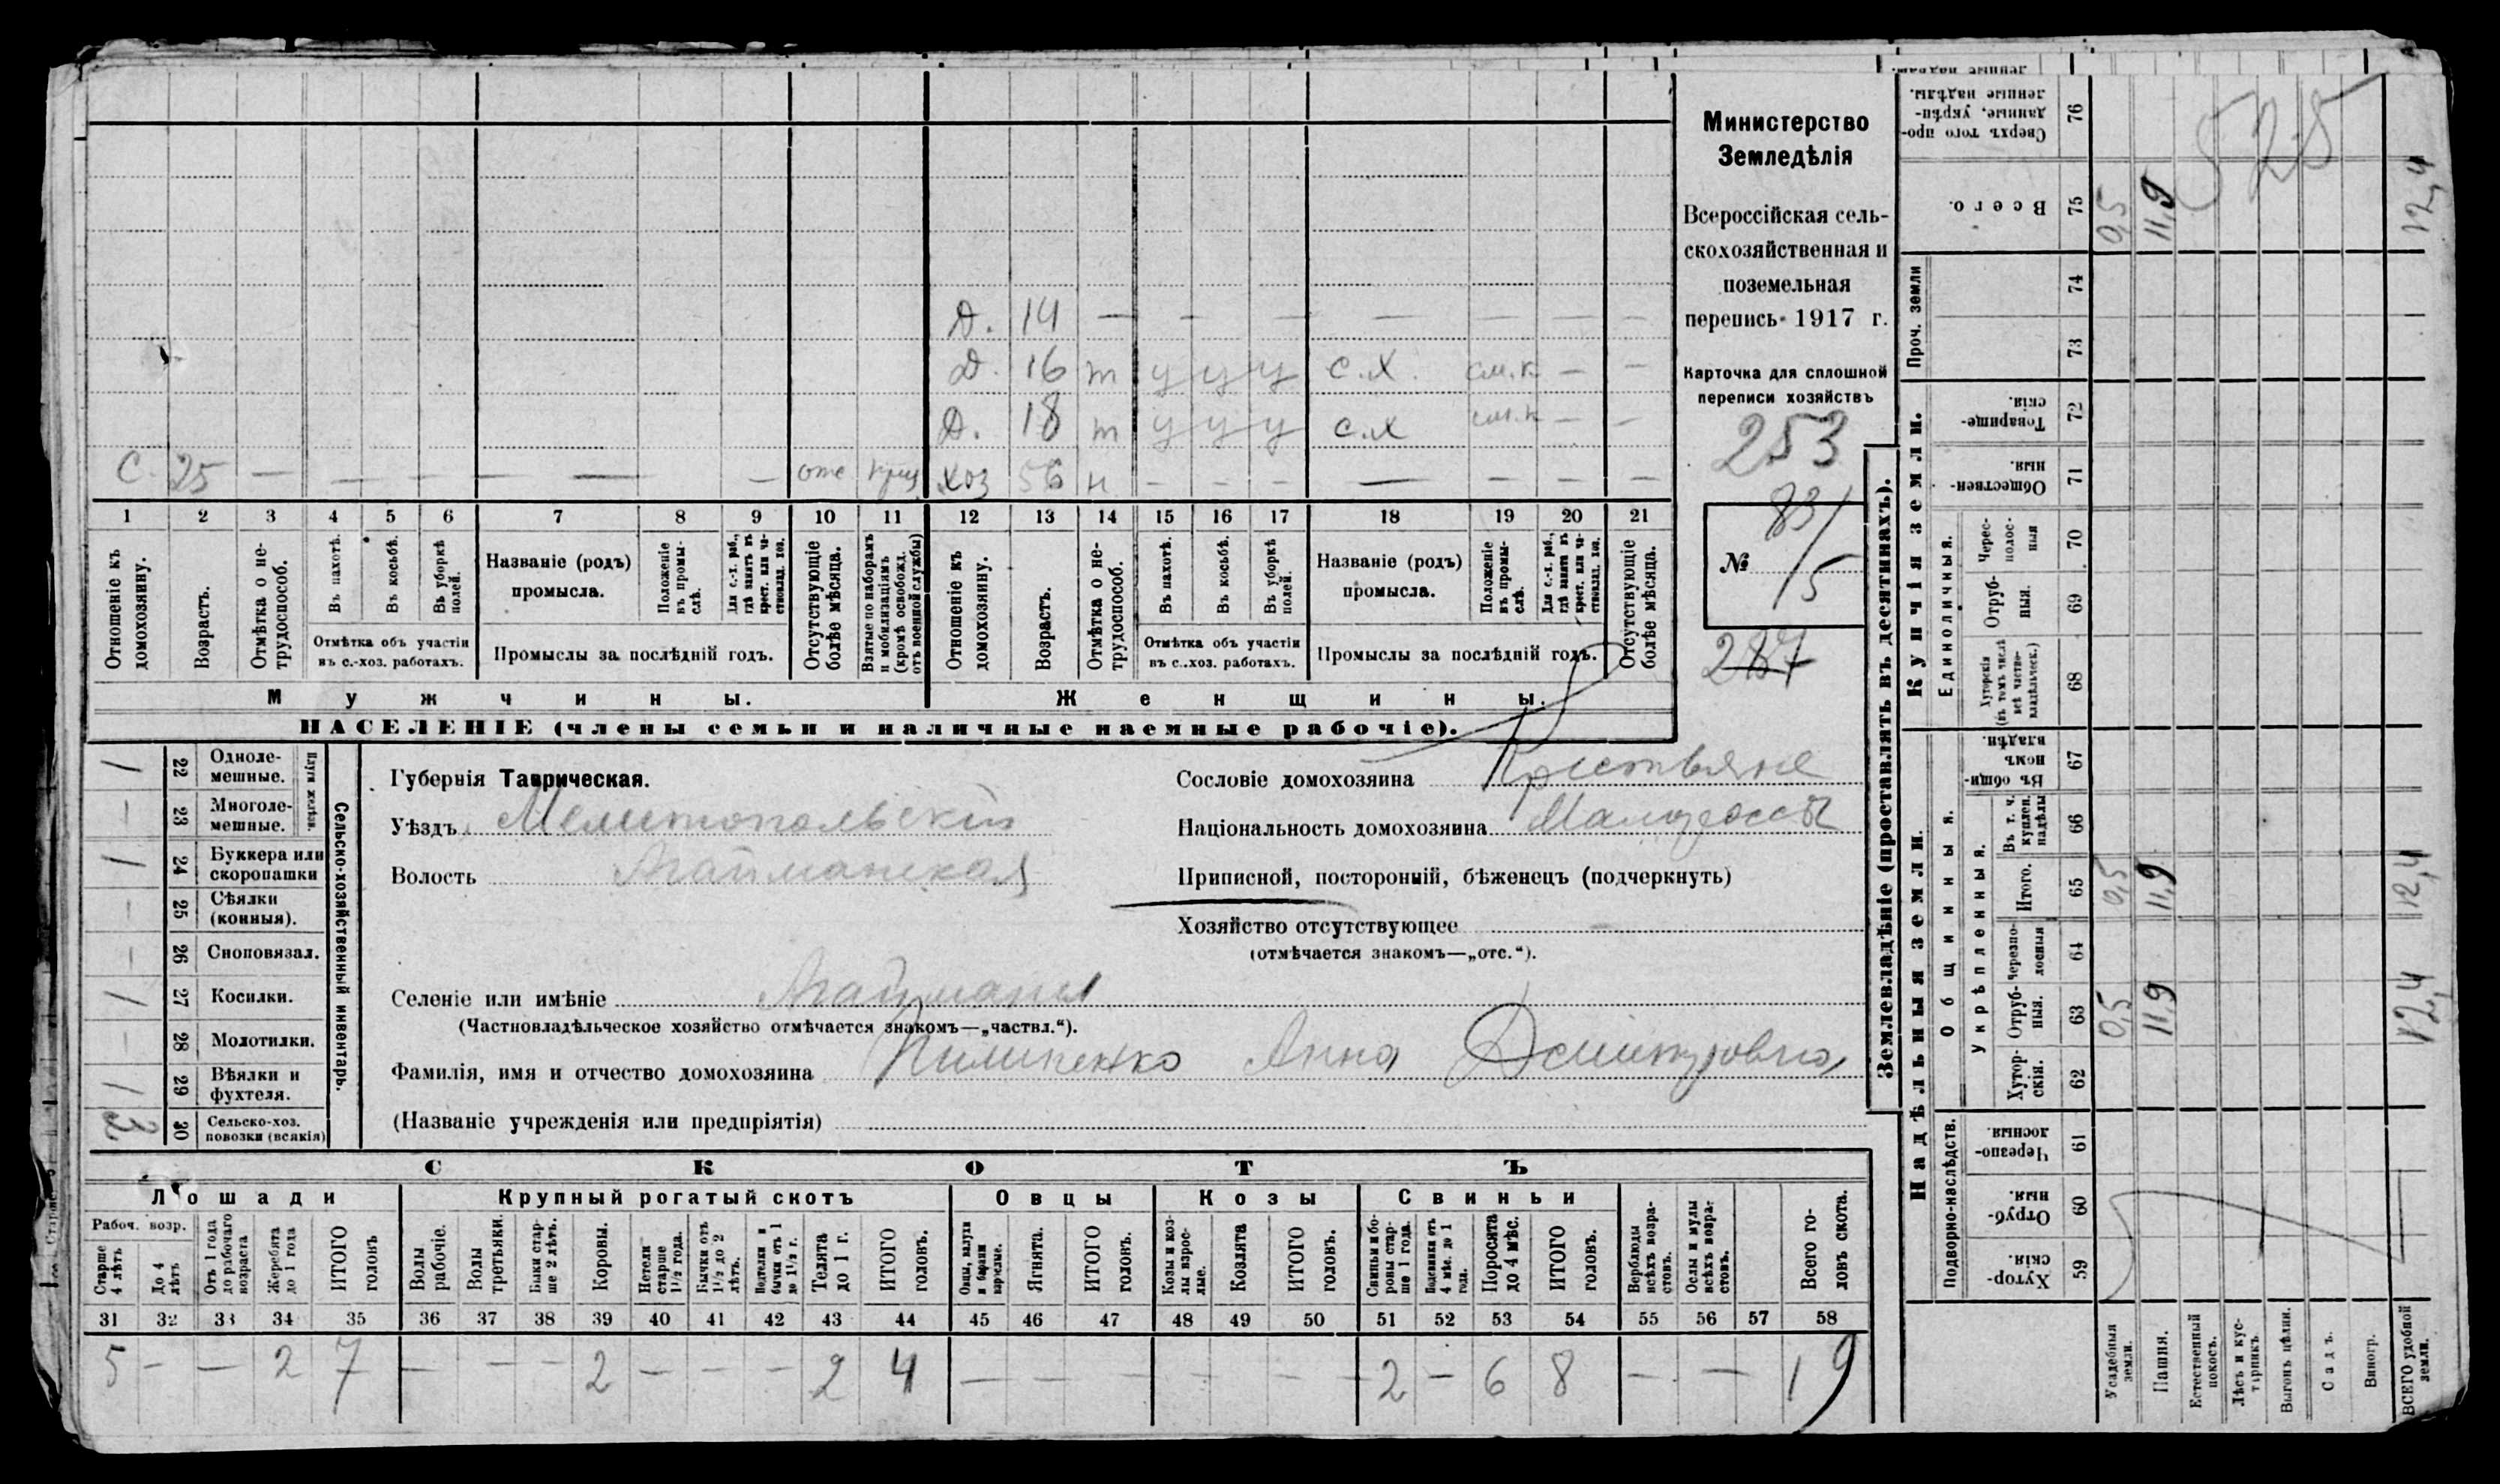 Министерство
Земледѣлія
Всероссійская сель-
скохозяйственная и
поземельная
перепись 1917 г.
Карточка для сплошной
переписи хозяйствъ
253
№ 83/
15
287
Д. 14 — — — — — — — —
Д. 16 т у у у с.х. см.к — —
Д. 18 т у у у с.х см.к — —
С. 25 — — — — — — отс хоз 56 н — — — — — — —
1 2 3 4 5 6 7 8 9 10 11 12 13 14 15 16 17 18 19 20 21
Отношеніе къ домохозяину.
Возрастъ.
Отмѣтка о не-трудоспособ.
Въ пахотѣ.
Въ косьбѣ.
Въ уборкѣ полей.
Отмѣтка объ участіи
въ с.-хоз. работахъ.
Названіе (родъ)
промысла.
Положеніе въ промы-слѣ.
Для с.-х. раб., гдѣ занятъ въ крест. или ча-стновлад. хоз.
Промыслы за послѣдній годъ.
Отсутствующіе болѣе мѣсяца.
Взятые по наборамъ и мобилизаціямъ (кромѣ освобожд. отъ военной службы)
Отношеніе къ домохозяину.
Возрастъ.
Отмѣтка о не-трудоспособ.
Въ пахотѣ.
Въ косьбѣ.
Въ уборкѣ полей.
Отмѣтка объ участіи
въ с..хоз. работахъ.
Названіе (родъ)
промысла.
Положеніе въ промы-слѣ.
Для с.-х. раб., гдѣ занятъ въ крест. или ча-стновлад. хоз.
Промыслы за послѣдній годъ.
Отсутствующіе болѣе мѣсяца.
Мужчины. Женщины.
НАСЕЛЕНІЕ (члены семьи и наличные наемные рабочіе).
Сельско-хозяйственный инвентарь.
Плуги желѣзн.
1 22 Одноле-мешные.
— 23 Многоле-мешные.
1 24 Буккера или скоропашки
— 25 Сѣялки (конныя).
— 26 Сноповязал.
1 27 Косилки.
— 28 Молотилки.
1 29 Вѣялки и фухтеля.
3 30 Сельско-хоз. повозки (всякія)
Губернія Таврическая.
Уѣздъ Мелитопольскій
Волость
Сословіе домохозяина Крестьяне
Національность домохозяина Малороссы
Приписной, посторонній, бѣженецъ (подчеркнуть)
Хозяйство отсутствующее —
(отмѣчается знакомъ—„отс.“).
Селеніе или имѣніе
(Частновладѣльческое хозяйство отмѣчается знакомъ—„частвл.“).
Фамилія, имя и отчество домохозяина Пилипенко Анна Дмитровна
(Названіе учрежденія или предпріятія)
СКОТЪ
Лошади Крупный рогатый скотъ Овцы Козы Свиньи
Рабоч. возр.
Старше 4 лѣтъ
До 4 лѣтъ
Отъ 1 года до рабочаго возраста
Жеребята до 1 года
ИТОГО головъ
Волы рабочіе.
Волы третьяки.
Быки стар-ше 2 лѣтъ.
Коровы.
Нетели старше 1½ года.
Бычки отъ 1½ до 2 лѣтъ.
Подтелки и бычки отъ 1 до 1½ г.
Телята до 1 г.
ИТОГО головъ.
Овцы, валухи и бараны взрослые.
Ягнята.
ИТОГО головъ.
Козы и коз-лы взрос-лые.
Козлята
ИТОГО головъ.
Свиньи и бо-ровы стар-ше 1 года.
Подсвинки отъ 4 мѣс. до 1 года.
Поросята до 4 мѣс.
ИТОГО головъ.
Верблюды всѣхъ возра-стовъ.
Ослы и мулы всѣхъ возра-стовъ.
Всего го-ловъ скота.
31 32 33 34 35 36 37 38 39 40 41 42 43 44 45 46 47 48 49 50 51 52 53 54 55 56 57 58
5 — — 2 7 — — — 2 — — — 2 4 — — — — — — 2 — 6 8 — — 19
Землевладѣніе (проставлять въ десятинахъ).
525
Сверхъ того про-данные, укрѣп-ленные надѣлы. 76
Всего. 75 0,5 11,9 12,4
Проч. земли 74
73
Купчія земли.
Товарище-скія. 72
Обществен-ныя. 71
Единоличныя.
Черес-полос-ныя 70
Отруб-ныя. 69
Хуторскія (въ томъ числѣ всѣ частно-владѣльческ.) 68
Надѣльныя земли.
Общинныя.
Въ общи-номъ владѣн. 67
Укрѣпленныя.
Въ т. ч. куплен. надѣлы 66
Итого. 65 0,5 11,9 12,4
Черезпо-лосныя 64
Отруб-ныя. 63 0,5 11,9 12,4
Хутор-скія. 62
Подворно-наслѣдств.
Черезпо-лосныя. 61
Отруб-ныя. 60
Хутор-скія. 59
Усадебныя земли.
Пашня.
Естественный покосъ.
Лѣсъ и кус-тарникъ.
Выгонъ цѣлин.
Садъ.
Виногр.
ВСЕГО удобной земли.